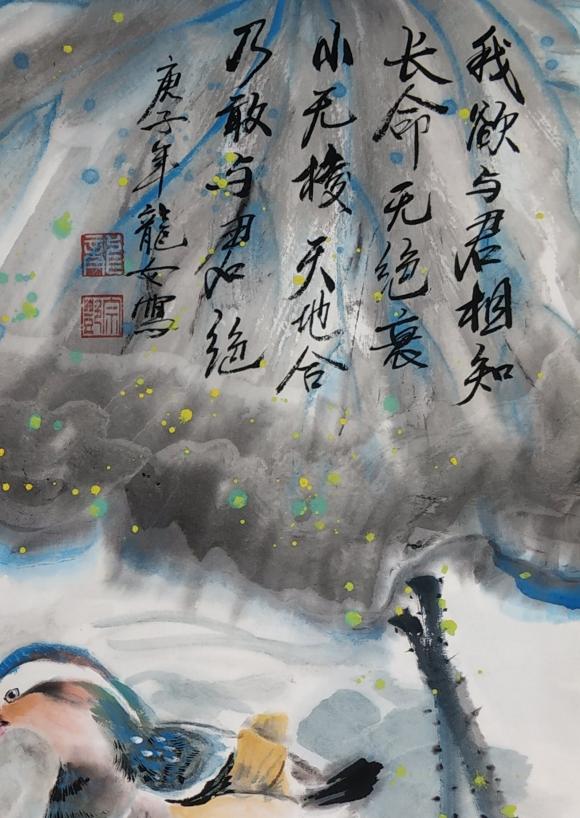 我欲与君相知
长命无绝衰
山无棱天地合
乃敢与君绝
庚子年龍女寫